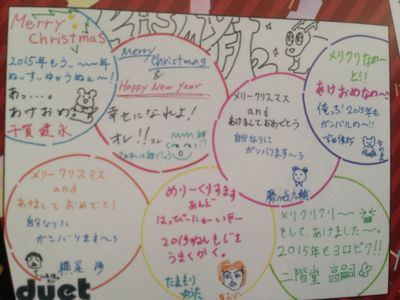 Merry
Christmas
2015年もう、〜〜年
あ、、、。
あけおめ
千賀健永
Merry
Christmas
&
Happy New Year
幸せになれよ!
オレ!!
メリークリスマス
and
あけましておめでとう
自分なりに
ガンバります〜う
藤ヶ谷太輔
メリクリなの〜
と!!
あけおめなの〜!!
俺っち!2015年も
ガンバルの〜!!
宮田俊哉
メリークリスマス
and
あけましておめでとう
自分なりに
ガンバります〜う
横尾渉
めりーくりすます
あんど
はっぴーにゅーいやー
2015ねんもじを
うまくかく。
たまもり
ゆうた
メリクリクリ〜〜皆
そして、あけました〜。
2015年もヨロピク!!
二階堂高嗣
duet